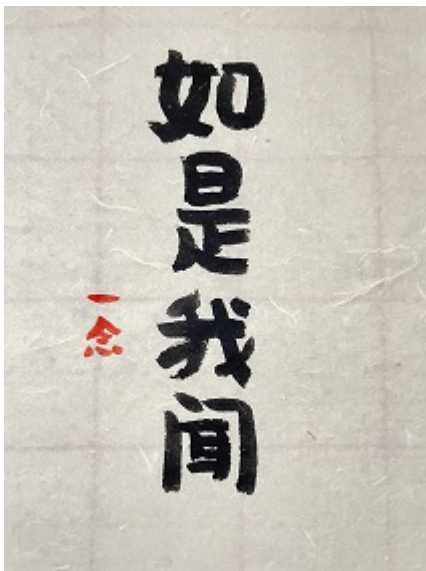 如是我闻
一念